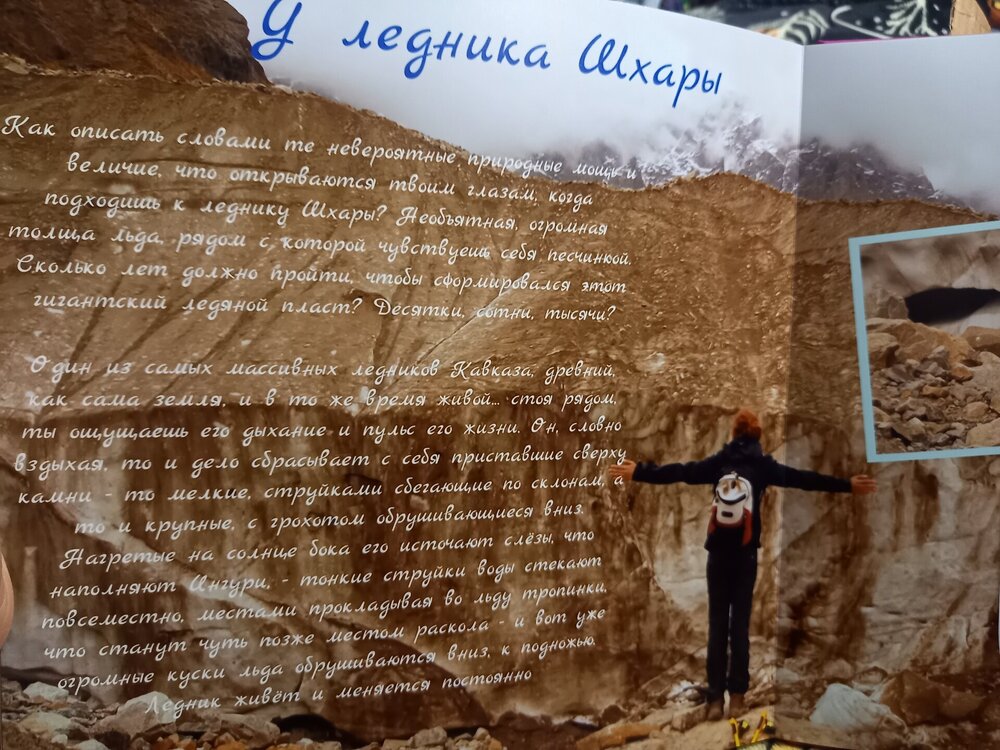 У ледника Шхары
Как описать словами те невероятные природные мощь и
величие, что открываются твоим глазам, когда
подходишь к леднику Шхары? Необъятная, огромная
толща льда, рядом с которой чувствуешь себя песчинкой.
Сколько лет должно пройти, чтобы сформировался этот
гигантский ледяной пласт? Десятки, сотни, тысячи?
Один из самых массивных ледников Кавказа, древний,
как сама земля, и в то же время живой... стоя рядом,
ты ощущаешь его дыхание и пульс его жизни. Он, словно
вздыхая, то и дело сбрасывает с себя приставшие сверху
камни - то мелкие, струйками сбегающие по склонам, а
то и крупные, с грохотом обрушивающиеся вниз.
Нагретые на солнце бока его источают слёзы, что
наполняют Ингури, - тонкие струйки воды стекают
повсеместно, местами прокладывая во льду тропинки,
что станут чуть позже местом раскола - и вот уже
огромные куски льда обрушиваются вниз, к подножью.
Ледник живёт и меняется постоянно